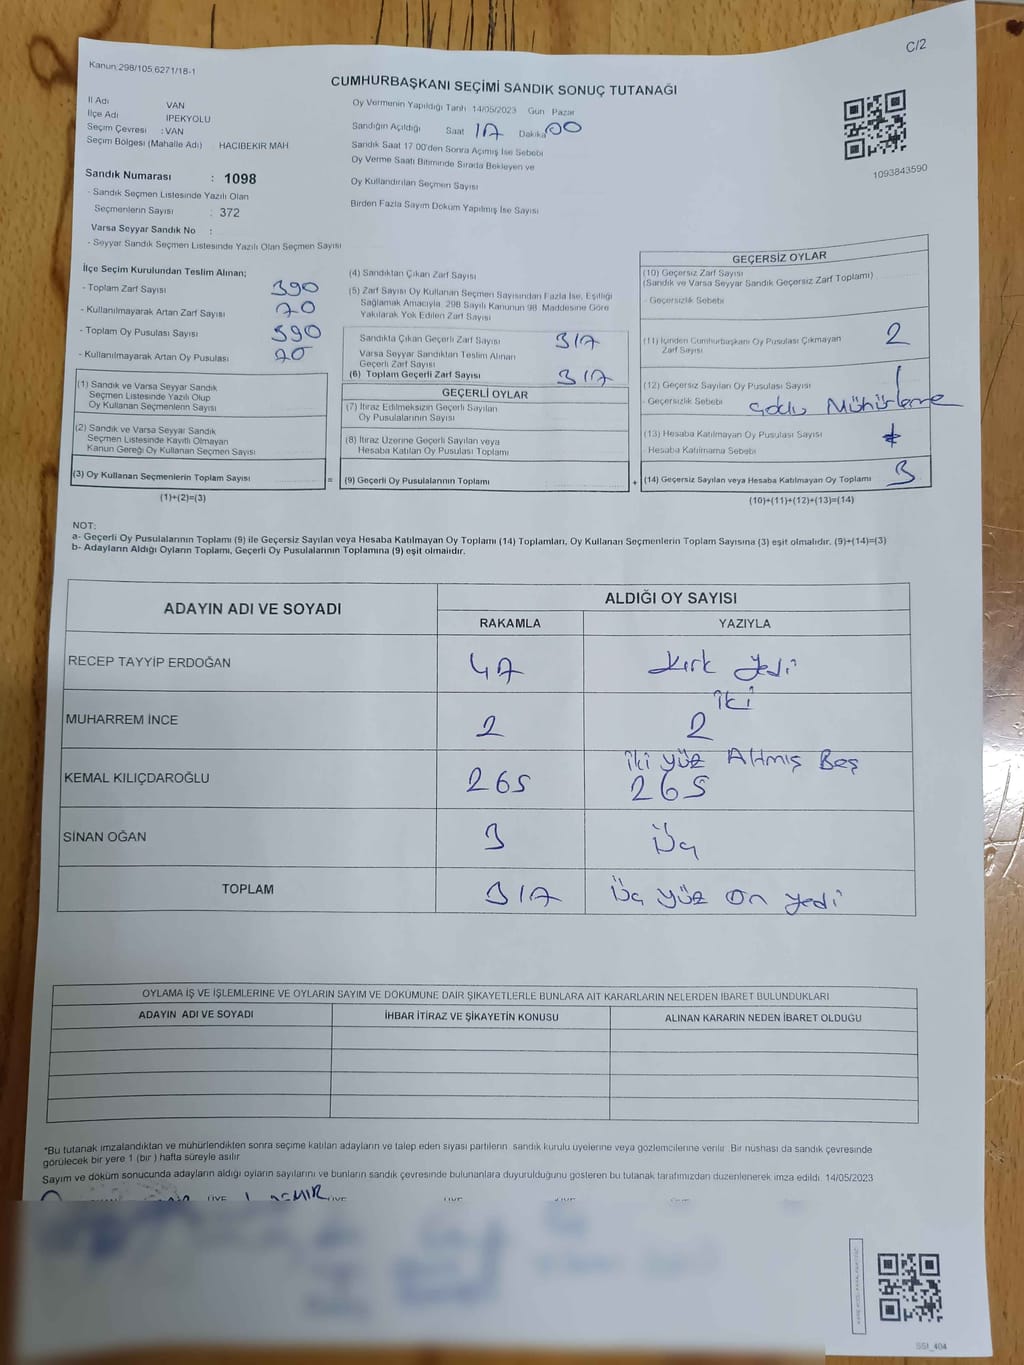 C/2
Kanun:298/105,6271/18-1
CUMHURBAŞKANI SEÇİMİ SANDIK SONUÇ TUTANAĞI
İl Adı VAN
İlçe Adı İPEKYOLU
Seçim Çevresi : VAN
Seçim Bölgesi (Mahalle Adı) HACIBEKİR MAH
Oy Vermenin Yapıldığı Tarih 14/05/2023 Gün Pazar
Sandığın Açıldığı Saat 17 Dakika 00
Sandık Saat 17:00'den Sonra Açılmış İse Sebebi
Oy Verme Saati Bitiminde Sırada Bekleyen ve
Oy Kullandırılan Seçmen Sayısı
Birden Fazla Sayım Döküm Yapılmış İse Sayısı
1093843590
Sandık Numarası : 1098
- Sandık Seçmen Listesinde Yazılı Olan
Seçmenlerin Sayısı : 372
Varsa Seyyar Sandık No :
- Seyyar Sandık Seçmen Listesinde Yazılı Olan Seçmen Sayısı
İlçe Seçim Kurulundan Teslim Alınan;
- Toplam Zarf Sayısı 390
- Kullanılmayarak Artan Zarf Sayısı 70
- Toplam Oy Pusulası Sayısı 390
- Kullanılmayarak Artan Oy Pusulası 70
(1) Sandık ve Varsa Seyyar Sandık
Seçmen Listesinde Yazılı Olup
Oy Kullanan Seçmenlerin Sayısı
(2) Sandık ve Varsa Seyyar Sandık
Seçmen Listesinde Kayıtlı Olmayan
Kanun Gereği Oy Kullanan Seçmen Sayısı
(3) Oy Kullanan Seçmenlerin Toplam Sayısı
(1)+(2)=(3)
(4) Sandıktan Çıkan Zarf Sayısı
(5) Zarf Sayısı Oy Kullanan Seçmen Sayısından Fazla İse, Eşitliği
Sağlamak Amacıyla, 298 Sayılı Kanunun 98. Maddesine Göre
Yakılarak Yok Edilen Zarf Sayısı
Sandıkta Çıkan Geçerli Zarf Sayısı 317
Varsa Seyyar Sandıktan Teslim Alınan
Geçerli Zarf Sayısı
(6) Toplam Geçerli Zarf Sayısı 317
GEÇERLİ OYLAR
(7) İtiraz Edilmeksizin Geçerli Sayılan
Oy Pusulalarının Sayısı
(8) İtiraz Üzerine Geçerli Sayılan veya
Hesaba Katılan Oy Pusulası Toplamı
= (9) Geçerli Oy Pusulalarının Toplamı
GEÇERSİZ OYLAR
(10) Geçersiz Zarf Sayısı
(Sandık ve Varsa Seyyar Sandık Geçersiz Zarf Toplamı)
- Geçersizlik Sebebi
(11) İçinden Cumhurbaşkanı Oy Pusulası Çıkmayan 2
Zarf Sayısı
(12) Geçersiz Sayılan Oy Pusulası Sayısı 1
- Geçersizlik Sebebi Çoklu Mühürleme
(13) Hesaba Katılmayan Oy Pusulası Sayısı
- Hesaba Katılmama Sebebi
+ (14) Geçersiz Sayılan veya Hesaba Katılmayan Oy Toplamı 3
(10)+(11)+(12)+(13)=(14)
NOT:
a- Geçerli Oy Pusulalarının Toplamı (9) ile Geçersiz Sayılan veya Hesaba Katılmayan Oy Toplamı (14) Toplamları, Oy Kullanan Seçmenlerin Toplam Sayısına (3) eşit olmalıdır. (9)+(14)=(3)
b- Adayların Aldığı Oyların Toplamı, Geçerli Oy Pusulalarının Toplamına (9) eşit olmalıdır.
ADAYIN ADI VE SOYADI ALDIĞI OY SAYISI
RAKAMLA YAZIYLA
RECEP TAYYİP ERDOĞAN 47 kırk yedi
MUHARREM İNCE 2 iki 2
KEMAL KILIÇDAROĞLU 265 iki yüz Altmış Beş 265
SİNAN OĞAN 3 Üç
TOPLAM 317 Üç yüz on yedi
OYLAMA İŞ VE İŞLEMLERİNE VE OYLARIN SAYIM VE DÖKÜMÜNE DAİR ŞİKAYETLERLE BUNLARA AİT KARARLARIN NELERDEN İBARET BULUNDUKLARI
ADAYIN ADI VE SOYADI İHBAR İTİRAZ VE ŞİKAYETİN KONUSU ALINAN KARARIN NEDEN İBARET OLDUĞU
*Bu tutanak imzalandıktan ve mühürlendikten sonra seçime katılan adayların ve talep eden siyasi partilerin sandık kurulu üyelerine veya gözlemcilerine verilir. Bir nüshası da sandık çevresinde
görülecek bir yere 1 (bir) hafta süreyle asılır
Sayım ve döküm sonucunda adayların aldığı oyların sayılarını ve bunların sandık çevresinde bulunanlara duyurulduğunu gösteren bu tutanak tarafımızdan düzenlenerek imza edildi. 14/05/2023
SSI_404